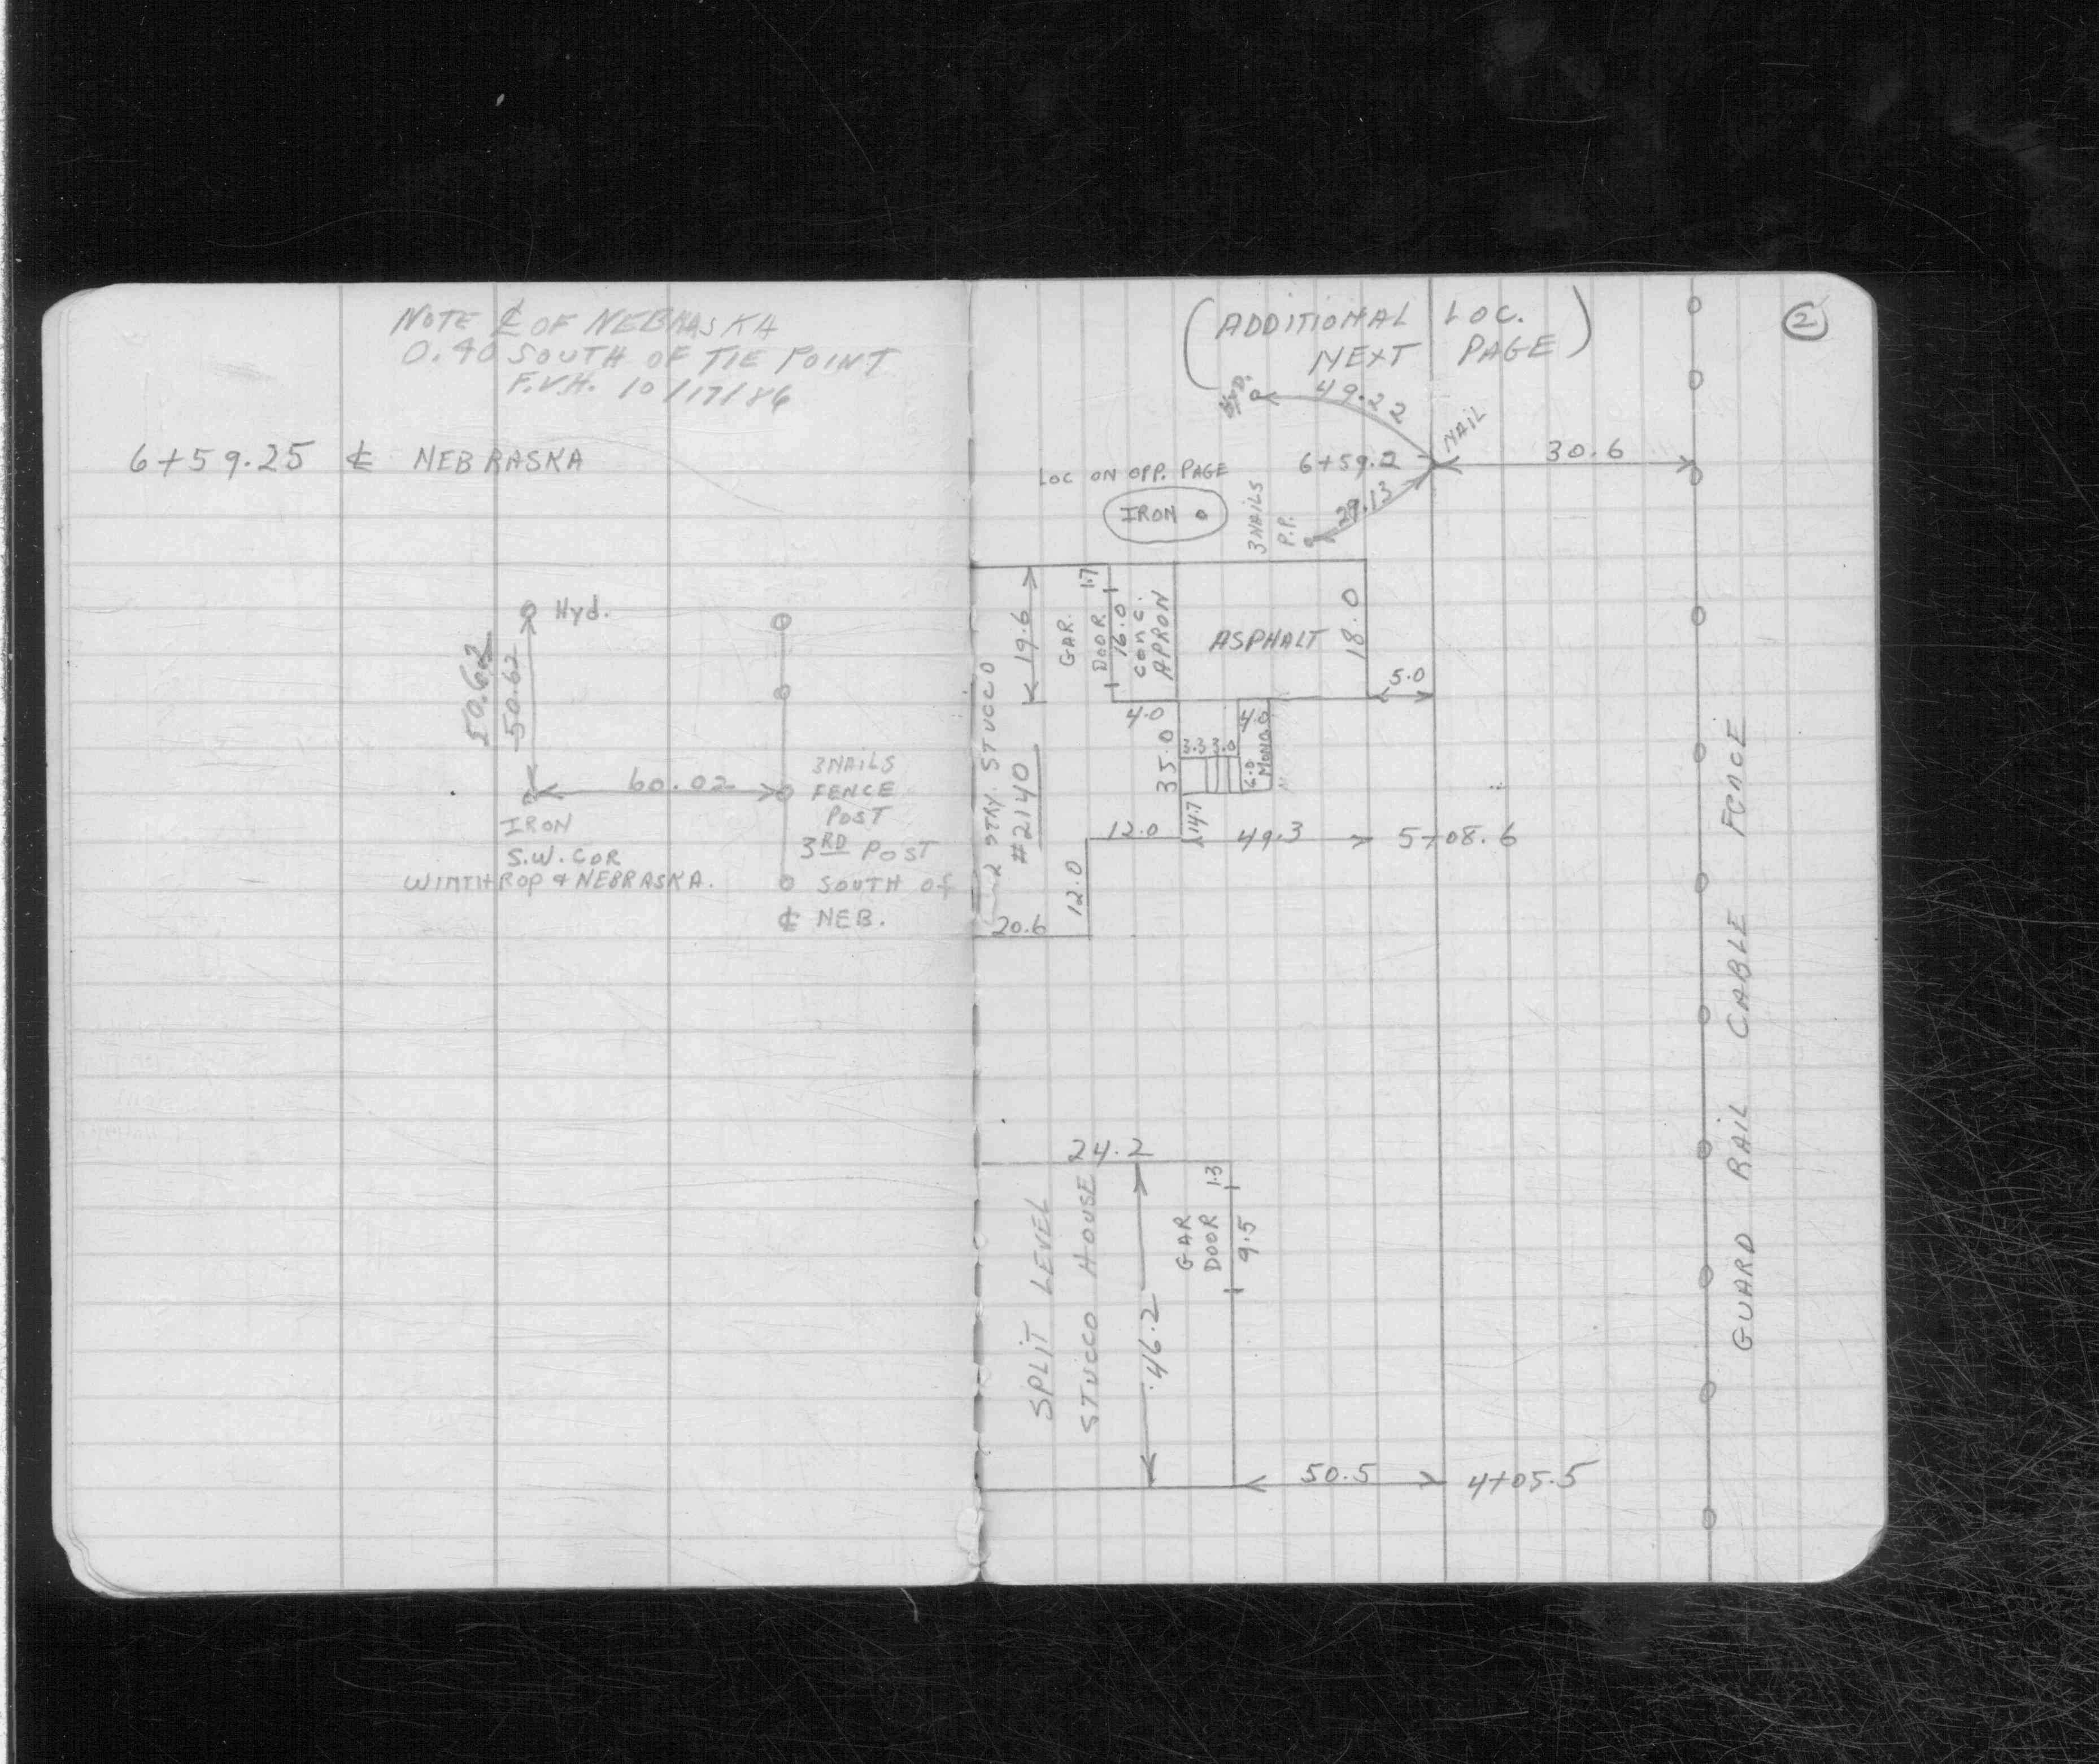 NOTE ℄ OF NEBRASKA
0.40 SOUTH OF TIE POINT
F.V.H. 10/17/86
6+59.25 ℄ NEBRASKA
Hyd.
50.62
50.62
60.02
IRON
S.W. COR
WINTHROP & NEBRASKA.
3 NAILS
FENCE
POST
3RD POST
SOUTH OF
℄ NEB.
2
(ADDITIONAL LOC.
NEXT PAGE)
49.22
NAIL
30.6
6+59.2
LOC ON OPP. PAGE
IRON
3 NAILS
P.P.
29.13
2 STRY. STUCCO
#2140
19.6
GAR.
DOOR
1.7
16.0
CONC.
APRON
ASPHALT
18.0
5.0
4.0
35.0
3.3 3.0
4.0
6.0
MONO.
14.7
12.0
49.3
5+08.6
12.0
20.6
GUARD RAIL CABLE FENCE
24.2
SPLIT LEVEL
STUCCO HOUSE
46.2
GAR
DOOR
1.3
9.5
50.5
4+05.5